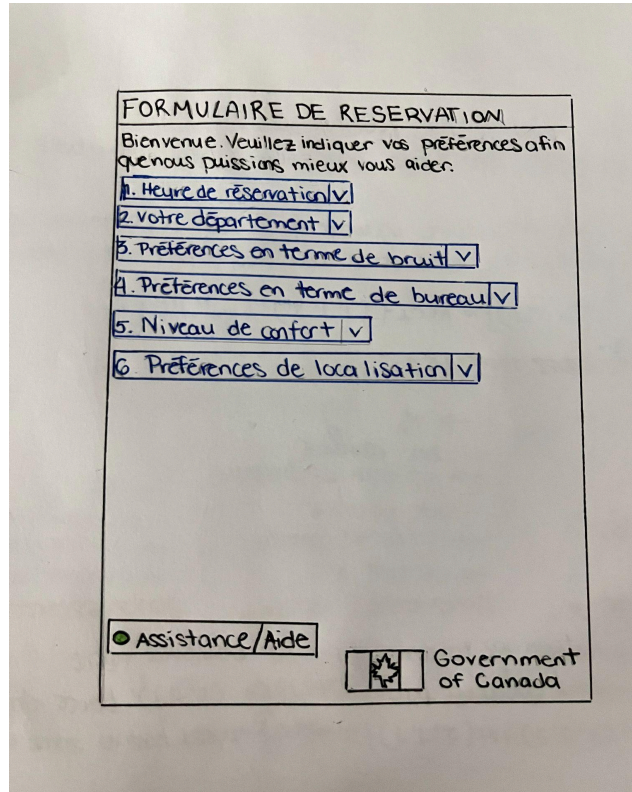 FORMULAIRE DE RESERVATION
Bienvenue. Veuillez indiquer vos préférences afin
que nous puissions mieux vous aider.
1. Heure de réservation V
2. votre département V
3. Préférences en terme de bruit V
4. Préférences en terme de bureau V
5. Niveau de confort V
6. Préférences de localisation V
Assistance/Aide
Government
of Canada